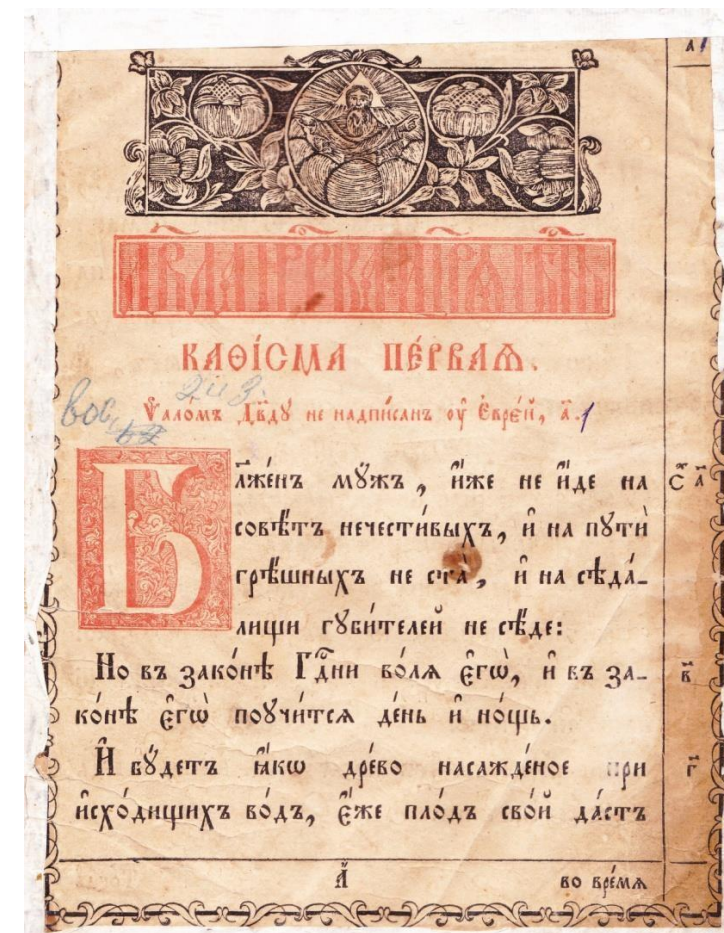 а҃
КАѲІ́СМА ПЕ́РВАѦ.
Ѱало́мъ Дв҃дꙋ не надпи́санъ ᲂу҆ Є҆вре́й, а҃.
Бл҃же́нъ мꙋ́жъ, и҆́же не и҆́де на
совѣ́тъ нечести́выхъ, и҆ на пꙋтѝ
грѣ́шныхъ не ста̀, и҆ на сѣда́-
лищи гꙋби́телей не сѣ́де:
Но въ зако́нѣ Гд҇ни во́лѧ є҆гѡ̀, и҆ въ за-
ко́нѣ є҆гѡ̀ поꙋчи́тсѧ де́нь и҆ но́щь.
в҃
И҆ бꙋ́детъ ꙗ҆́кѡ дре́во насажде́ное при
г҃
и҆схо́дищихъ во́дъ, є҆́же пло́дъ сво́й да́стъ
а҃
во вре́мѧ